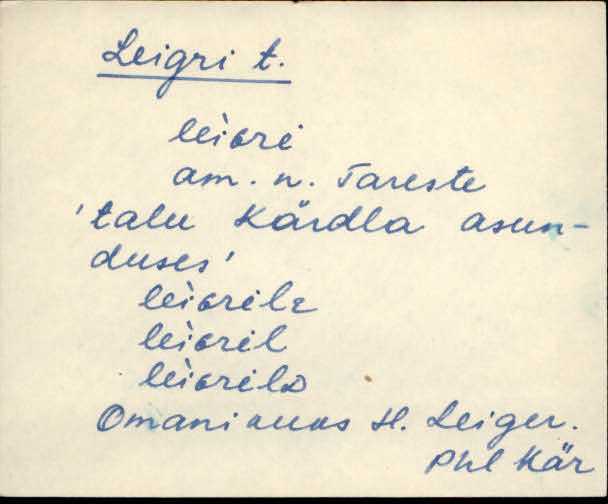 Leigri t.
lèiɢri
am. n. Tareste
'talu Kärdla asun-
duses'
lèiɢrilᴇ
lèiɢril
lèiɢrilᴅ
Omanikuks H. Leiger.
Phl Kär